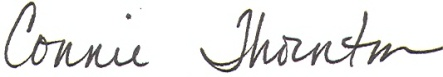 Connie Thornton